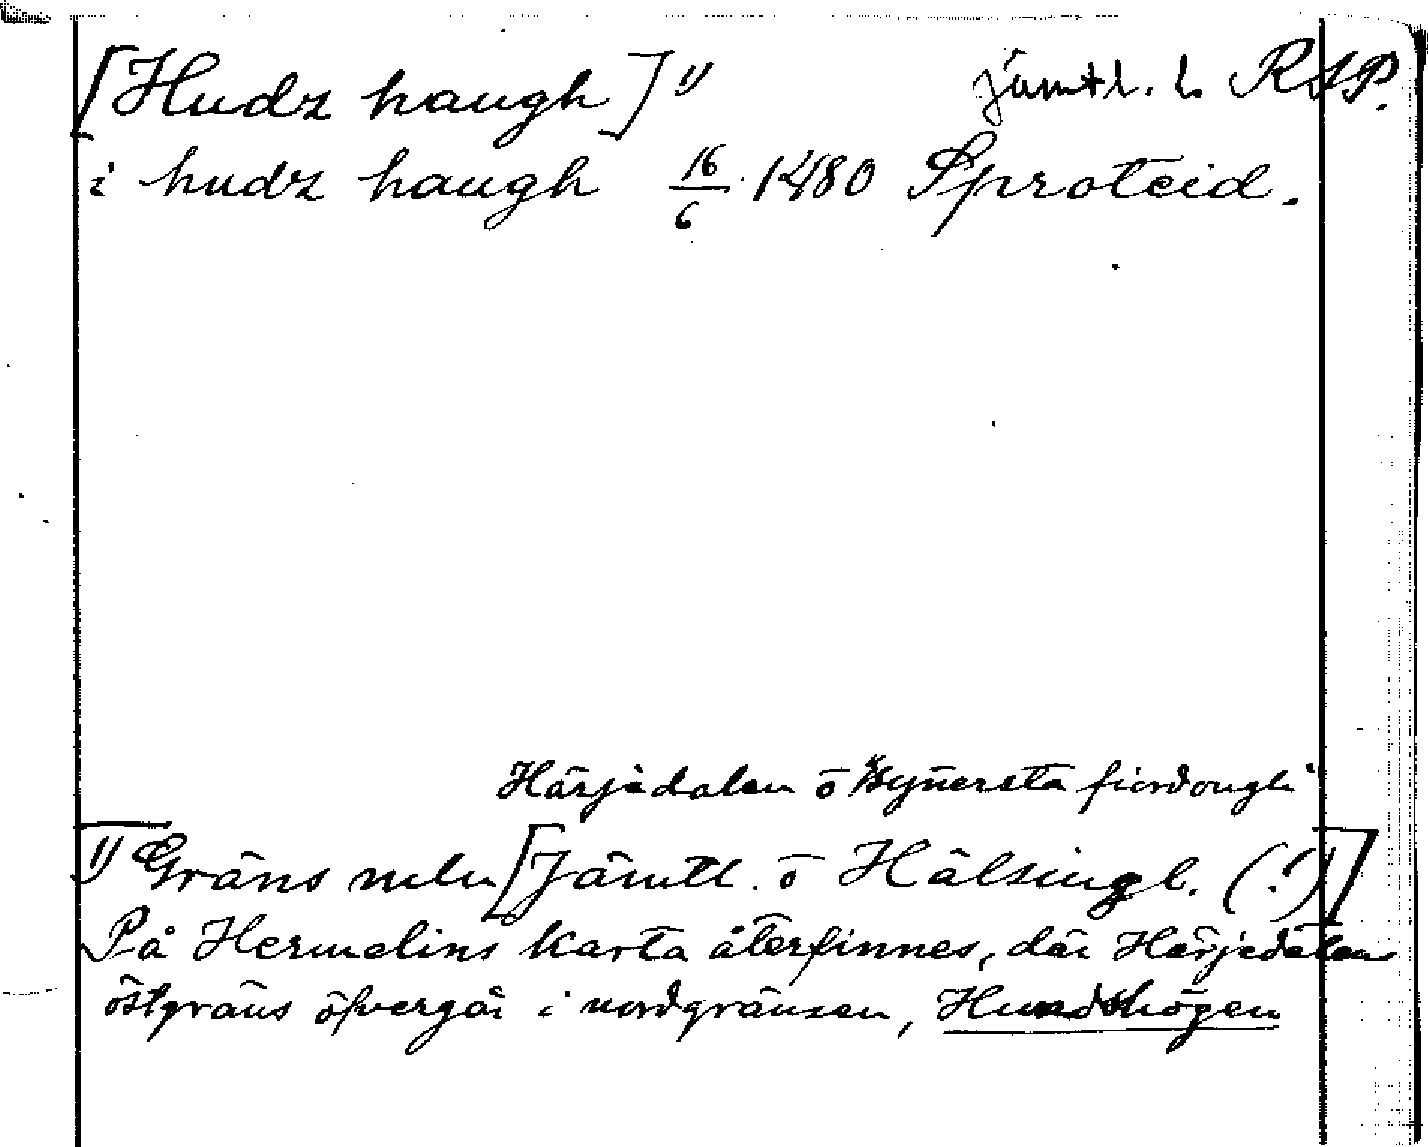 [Hudz haugh] 1)
jämtl. l. RSP.
i hudz haugh 16/6 1480 Sproteid.
Härjedalen o "synersta fiordough"
1) Gräns mln [Jämtl. o Hälsingl. (!)]
På Hermelins karta återfinnes, där Härjedalen
östgräns öfvergår i nordgränsen, Hundshögen